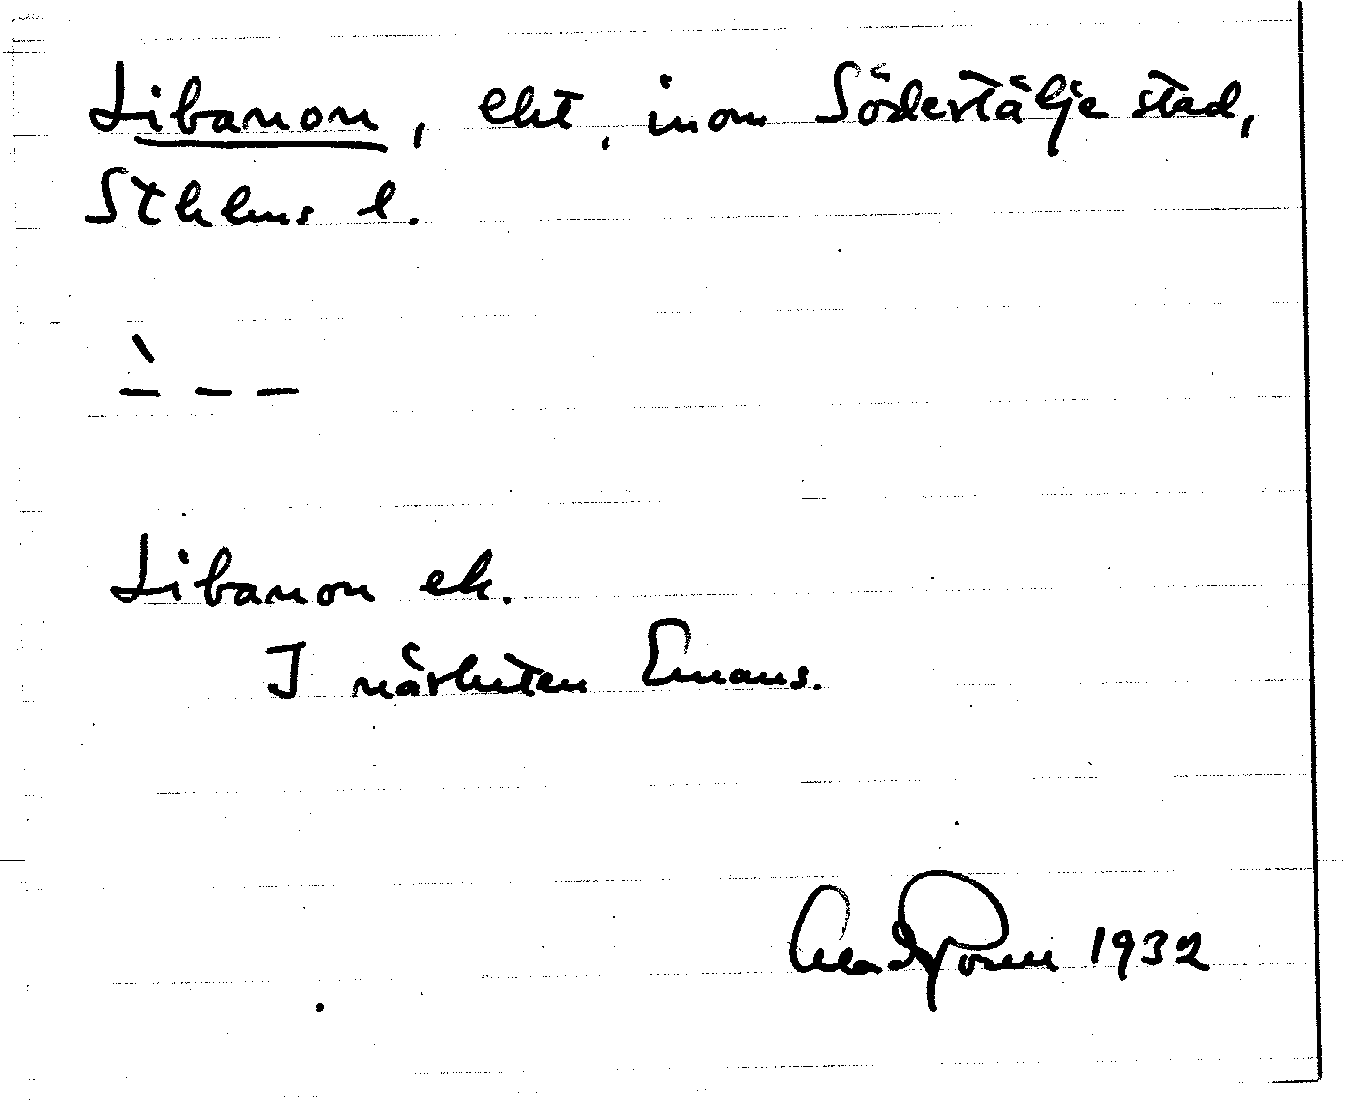 Libanon, ekt, inom Södertälje stad,
Sthlms l.
Libanon ek.
I närheten Emaus.
1932